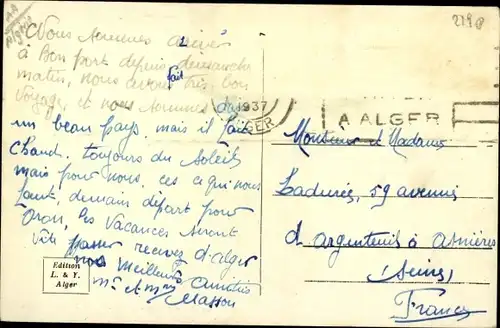 Nous sommes arrivés
à Bon port depuis dimanche
matin, nous avons fait très bon
voyage, et nous sommes dans
un beau pays, mais il fait
chaud, toujours du soleil
mais pour nous, ces ce qui nous
faut, demain départ pour
Oran, les vacances seront
vite passer recevez d'alger
nos meilleurs amitiés
Masson
Edition
L. & Y.
Alger
1937
A ALGER
Monsieur et Madame
Ladurée, 59 avenue
d argenteuil à asnières
(Seine)
France